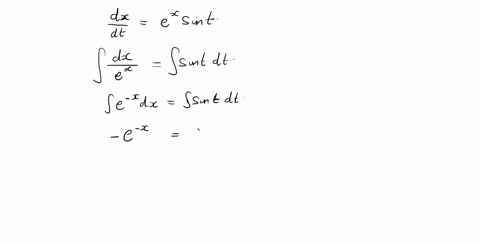 dx/dt = e^x sint.
∫ dx/e^x = ∫ sint dt.
∫ e^-x dx = ∫ sint dt.
-e^-x =